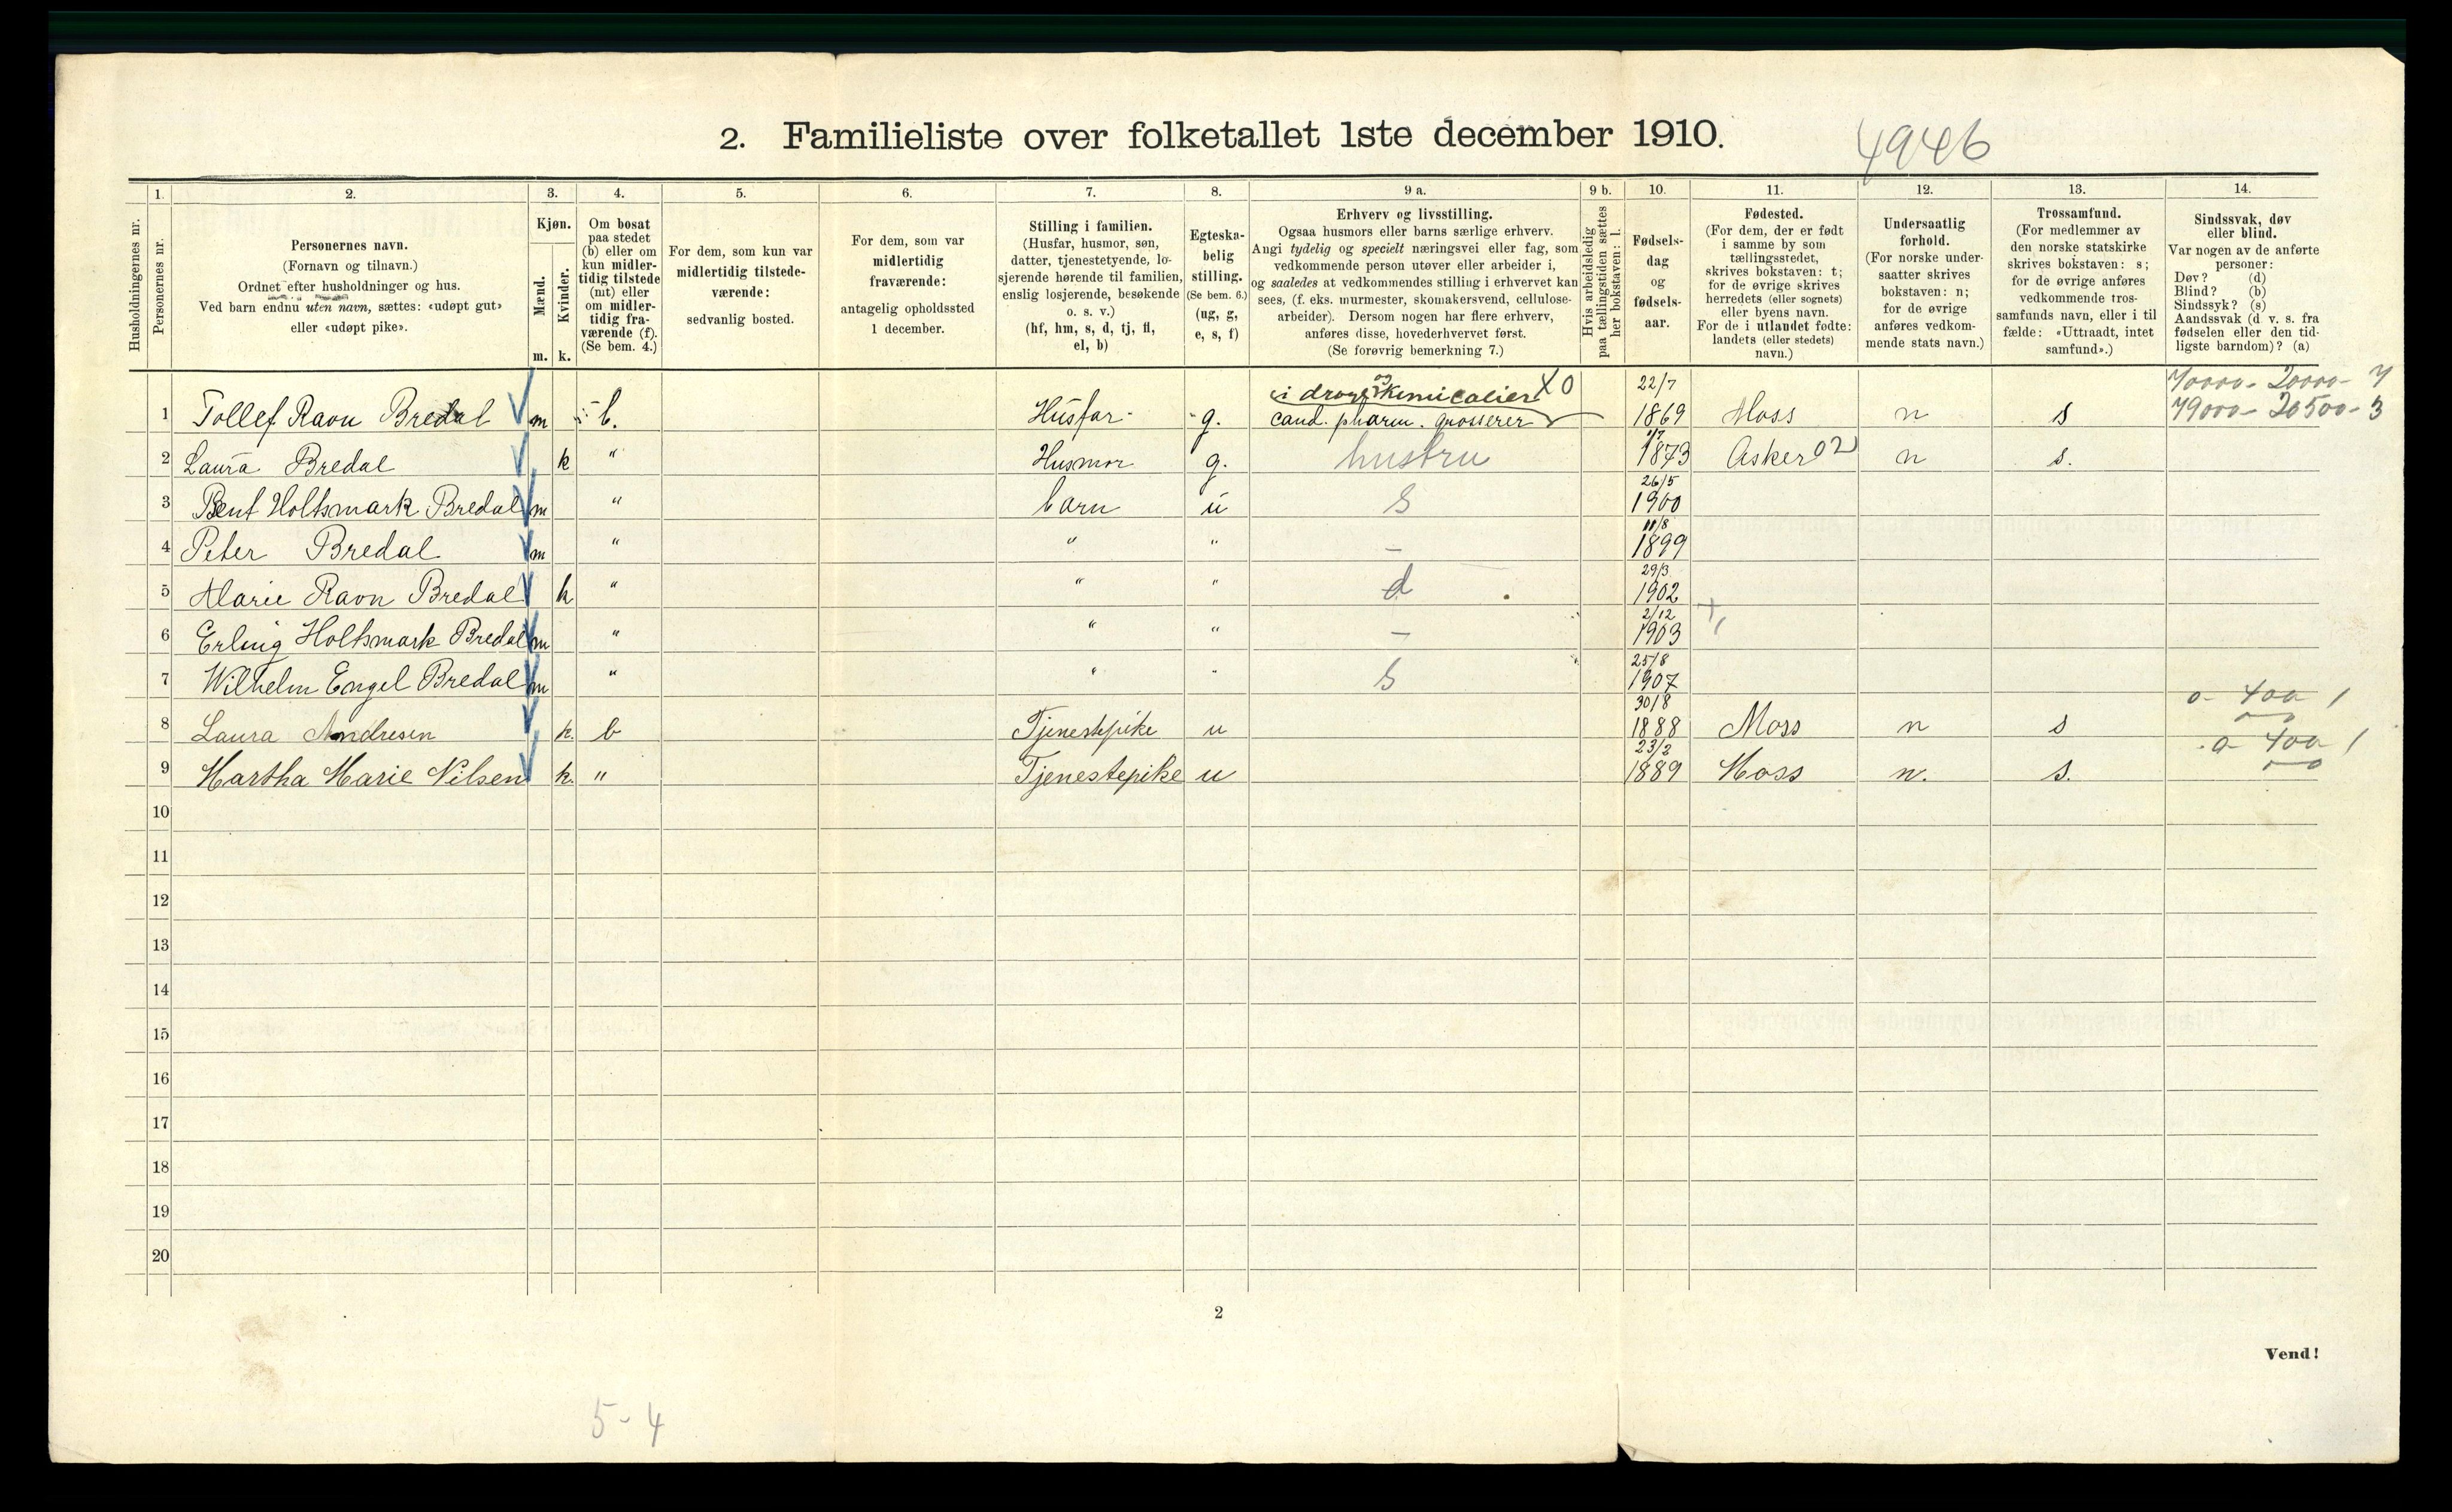 2. Familieliste over folketallet 1ste december 1910.
4946
Husholdningernes nr.
1.
Personernes nr.
2.
Personernes navn.
(Fornavn og tilnavn.)
Ordnet efter husholdninger og hus.
Ved barn endnu uten navn, sættes: «udøpt gut»
eller «udøpt pike».
3.
Kjøn.
Mænd.
m.
Kvinder.
k.
4.
Om bosat
paa stedet
(b) eller om
kun midler-
tidig tilstede
(mt) eller
om midler-
tidig fra-
værende (f).
(Se bem. 4.)
5.
For dem, som kun var
midlertidig tilstede-
værende:
sedvanlig bosted.
6.
For dem, som var
midlertidig
fraværende:
antagelig opholdssted
1 december.
7.
Stilling i familien.
(Husfar, husmor, søn,
datter, tjenestetyende, lo-
sjerende hørende til familien,
enslig losjerende, besøkende
o. s. v.)
(hf, hm, s, d, tj, fl,
el, b)
8.
Egteska-
belig
stilling.
(Se bem. 6.)
(ug, g,
e, s, f)
9 a.
Erhverv og livsstilling.
Ogsaa husmors eller barns særlige erhverv.
Angi tydelig og specielt næringsvei eller fag, som
vedkommende person utøver eller arbeider i,
og saaledes at vedkommendes stilling i erhvervet kan
sees, (f. eks. murmester, skomakersvend, cellulose-
arbeider). Dersom nogen har flere erhverv,
anføres disse, hovederhvervet først.
(Se forøvrig bemerkning 7.)
9 b.
Hvis arbeidsledig
paa tællingstiden sættes
her bokstaven: l.
10.
Fødsels-
dag
og
fødsels-
aar.
11.
Fødested.
(For dem, der er født
i samme by som
tællingsstedet,
skrives bokstaven: t;
for de øvrige skrives
herredets (eller sognets)
eller byens navn.
For de i utlandet fødte:
landets (eller stedets)
navn.)
12.
Undersaatlig
forhold.
(For norske under-
saatter skrives
bokstaven: n;
for de øvrige
anføres vedkom-
mende stats navn.)
13.
Trossamfund.
(For medlemmer av
den norske statskirke
skrives bokstaven: s;
for de øvrige anføres
vedkommende tros-
samfunds navn, eller i til
fælde: «Uttraadt, intet
samfund».)
14.
Sindssvak, døv
eller blind.
Var nogen av de anførte
personer:
Døv? (d)
Blind? (b)
Sindssyk? (s)
Aandssvak (d. v. s. fra
fødselen eller den tid-
ligste barndom)? (a)
i drog. og kemicalier X0 22/7 70000- 20000- 4
1 Tollef Ravn Bredal m b. Husfar g. cand. pharm. grosserer 1869 Moss n s 79000- 20500- 3
1/7
2 Laura Bredal k " Husmor g. hustru 1873 Asker 02 n s.
26/5
3 Bent Holtsmark Bredal m " barn u s 1900
11/8
4 Peter Bredal m " " " – 1899
29/3
5 Marie Ravn Bredal k " " " d 1902
2/12
6 Erling Holtsmark Bredal m " " " – 1903
25/8
7 Wilhelm Engel Bredal m " " " s 1907
30/8 0- 400 1
8 Laura Andresen k. b Tjenestepike u 1888 Moss n s
23/2 0- 400 1
9 Martha Marie Nilsen k. " Tjenestepike u 1889 Moss n. s.
10
11
12
13
14
15
16
17
18
19
20
2
Vend!
5-4